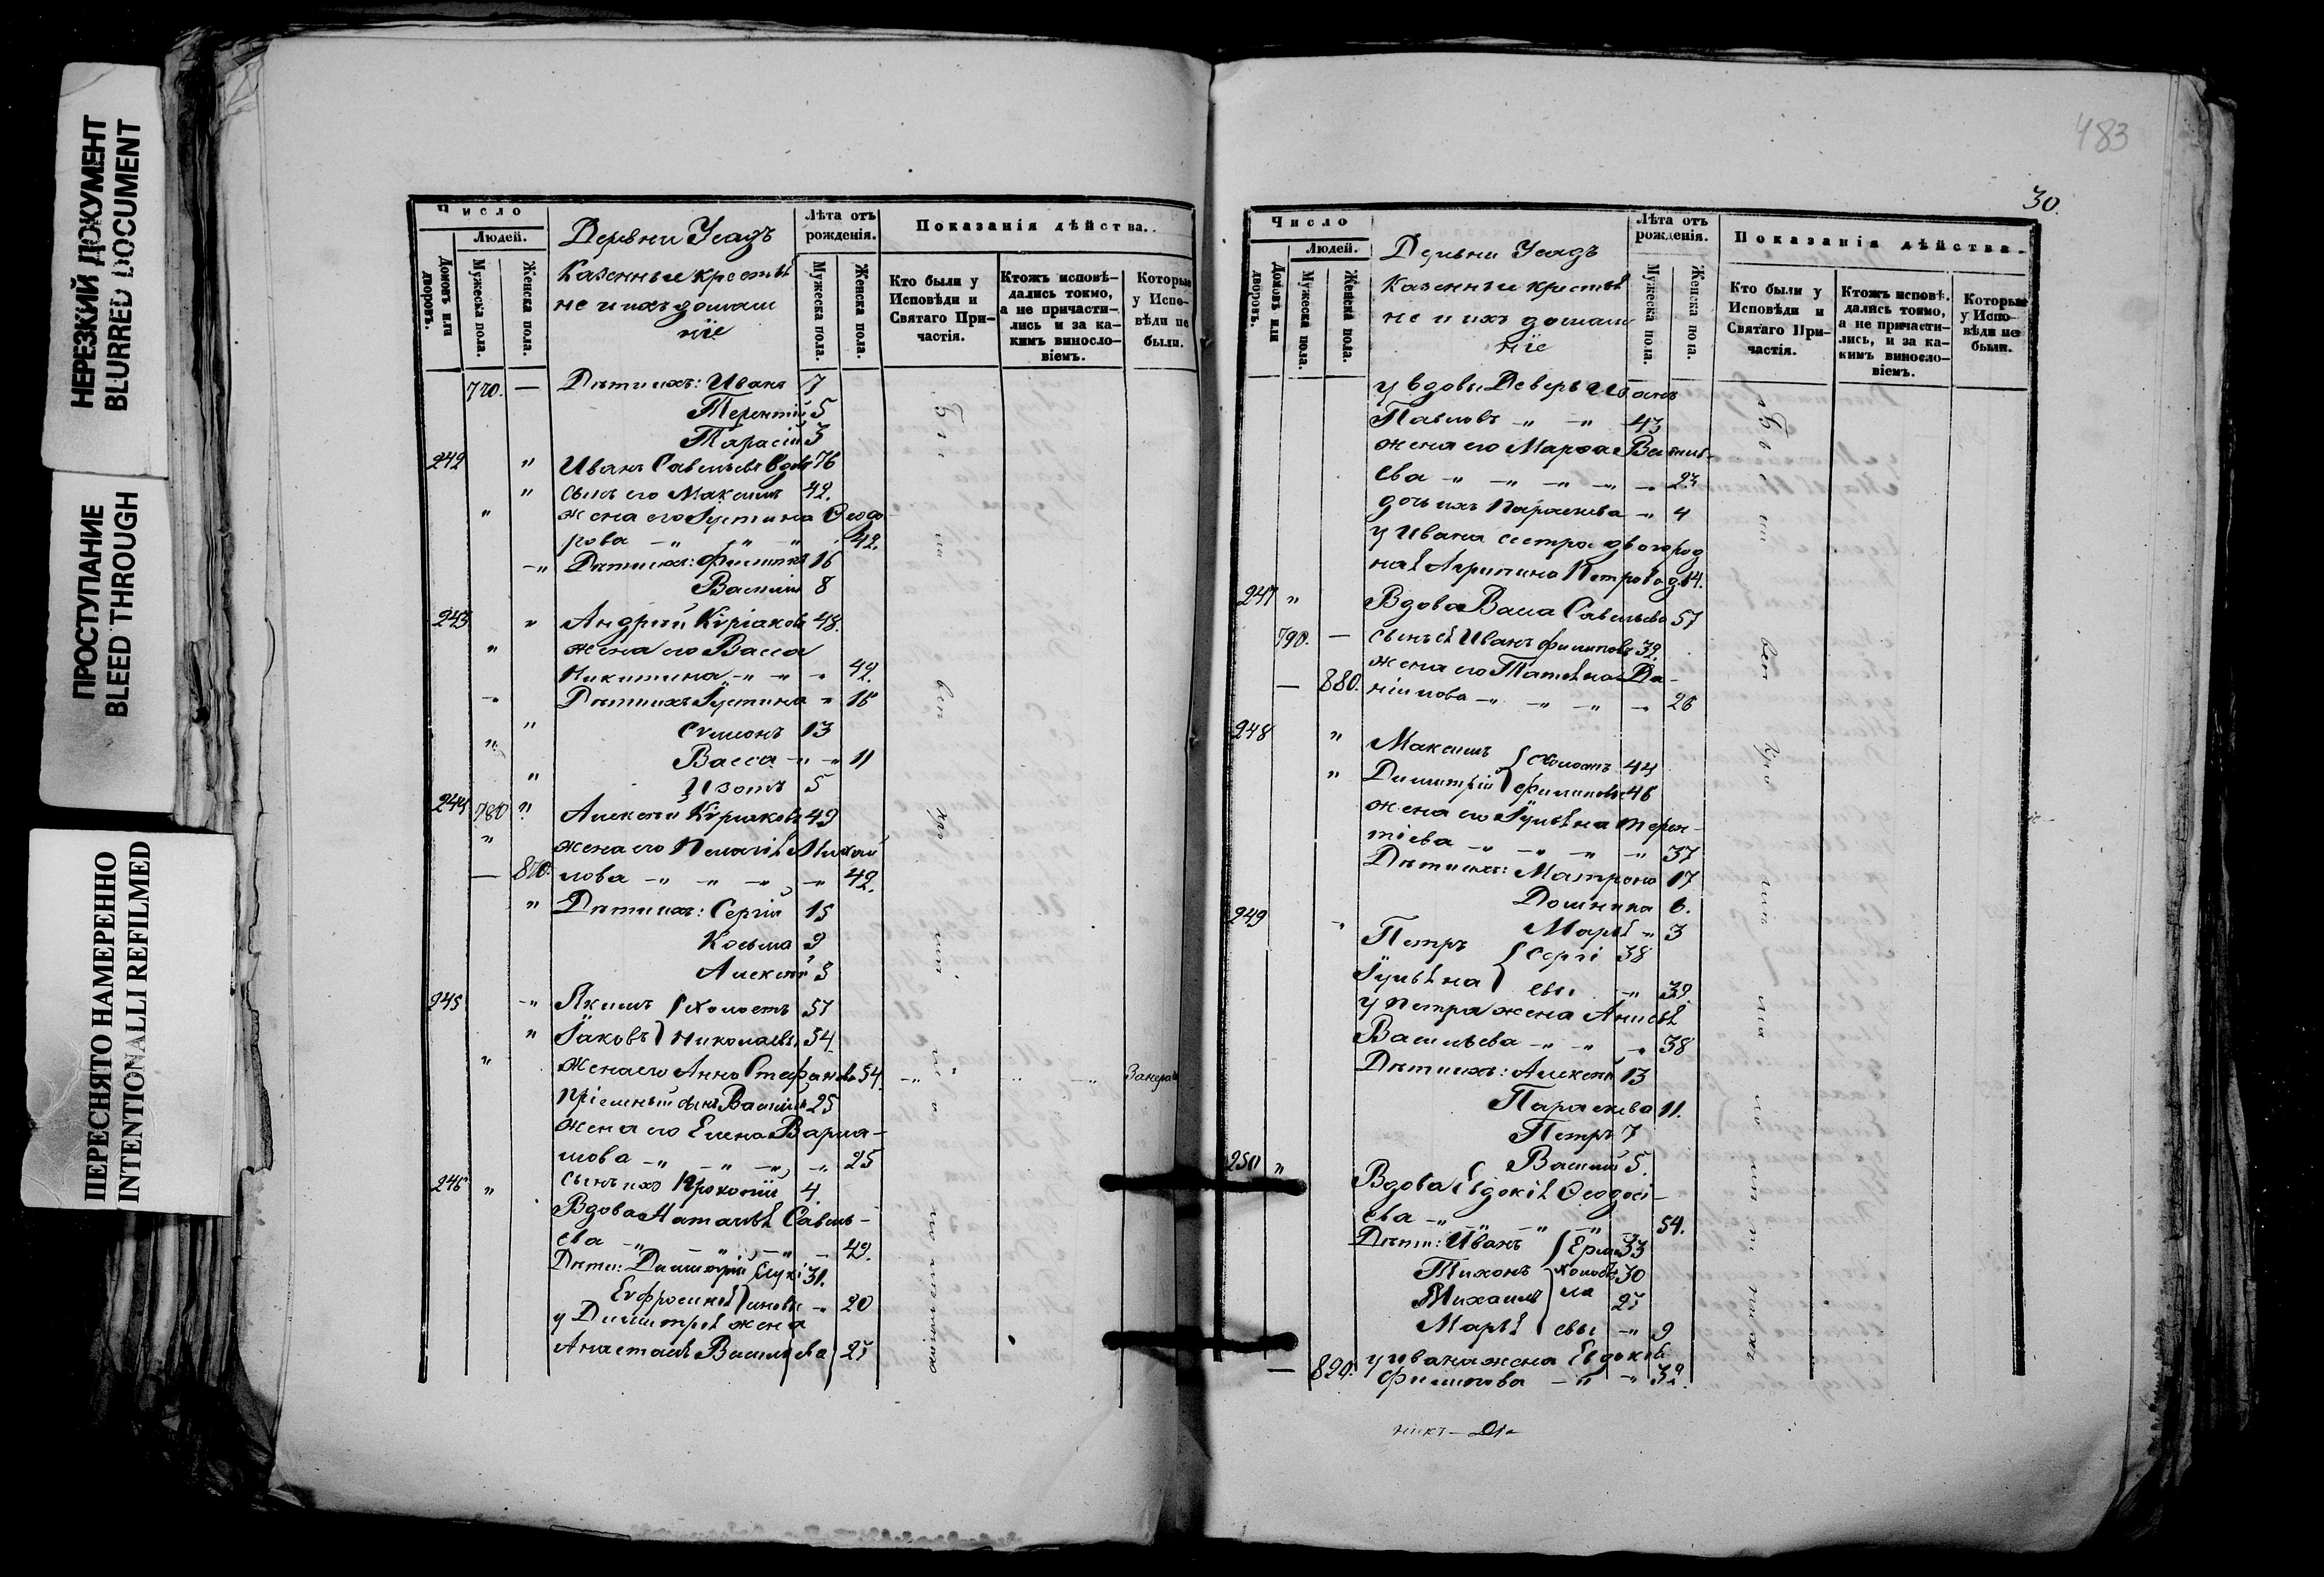 НЕРЕЗКИЙ ДОКУМЕНТ
BLURRED DOCUMENT
ПРОСТУПАНИЕ
BLEED THROUGH
ПЕРЕСНЯТО НАМЕРЕННО
INTENTIONALLI REFILMED
Число
Людей.
Домовъ или дворовъ.
Мужеска пола.
Женска пола.
Деревни Усадъ
Казенные крестья
не и ихъ домаш
нїе
Лѣта отъ рожденія.
Мужеска пола.
Женска пола.
Показанія дѣйства.
Кто были у Исповѣди и Святаго При-
частія.
Ктожъ исповѣ-
дались токмо,
а не причасти-
лись и за ка-
кимъ винословіемъ.
Которые
у Испо-
вѣди не
были.
770. — Дѣти ихъ: Иванъ 7
Терентій 5
Тарасій 3
242 " Иванъ Савельевъ вдовъ 76
" сынъ его Максимъ 42.
" жена его Іустина Ѳеодо
рова " " " 42.
" Дѣти ихъ: Филиппъ 16
Василій 8
243 " Андрей Кѵріаковъ 48.
" жена его Васса
Никитина " " " 42.
" Дѣти ихъ Іустина " 16
" Сѵмеонъ 13
" Васса " " 11
" Изотъ 5
244 780 " Алексѣй Кѵріаковъ 49
" жена его Пелагія Михай
— 870. лова " " " " 42.
" Дѣти ихъ: Сергій 15
Косьма 9
Алексѣй 3
245 " Якимъ холостъ 57
" Іаковъ Николаевы 54
" Жена его Анна Стефанова 54.
пріемный сынъ Василій 25
жена его Елена Варла-
мова " " " " 25
246 " сынъ ихъ Прокопій 4.
Вдова Наталья Савель-
ева " " " " 49.
Дѣти: Димитрій 31.
Еѵфросинья " 20
у Димитрія жена
Анастасія Васильева 25
Были
483
30.
Число
Людей.
Домовъ или дворовъ.
Мужеска пола.
Женска пола.
Деревни Усадъ
Казенные крестья
не и ихъ домаш
нїе
Лѣта отъ рожденія.
Мужеска пола.
Женска пола.
Показанія дѣйства.
Кто были у
Исповѣди и
Святаго При-
частія.
Ктожъ исповѣ-
дались токмо,
а не причасти-
лись, и за ка-
кимъ винословіемъ.
Которые
у Испо-
вѣди не
были.
у вдовы Деверь Иванъ
Павловъ " " 43
жена его Марѳа Василь-
ева " " " " " 23
дочь ихъ Параскева " 4
у Ивана сестра двоюрод
ная Агрипина Петрова д. 64.
247 " Вдова Васса Савельева 57
790. — сынъ ея Иванъ Филиповъ 32.
жена его Татьяна Да-
— 880. ніилова " " " " 26
248 " Максимъ холостъ 44
" Димитрій Филиповы 46
жена его Іульяна Терен-
тіева " " " " 37
Дѣти ихъ: Матрона 17
Домника 6.
Марья " 3
249 " Петръ Сергі 38
Іульяна евы " 39.
у Петра жена Анисья
Васильева " " " 38
Дѣти ихъ: Алексѣй 13
Параскева 11.
Петръ 7
Василій 5.
250 " Вдова Евдокія Ѳеодосі-
ева " " " " 54.
Дѣти: Иванъ 33
Тихонъ 30
Михаилъ 25
Марья евы " 9
у Ивана жена Евдокія
— 890. Филипова " " 32.